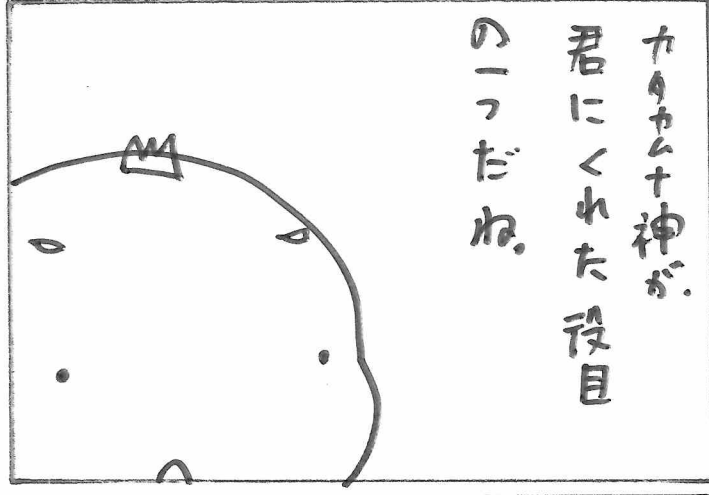 カタカムナ神が、
君にくれた役目
の一つだね。